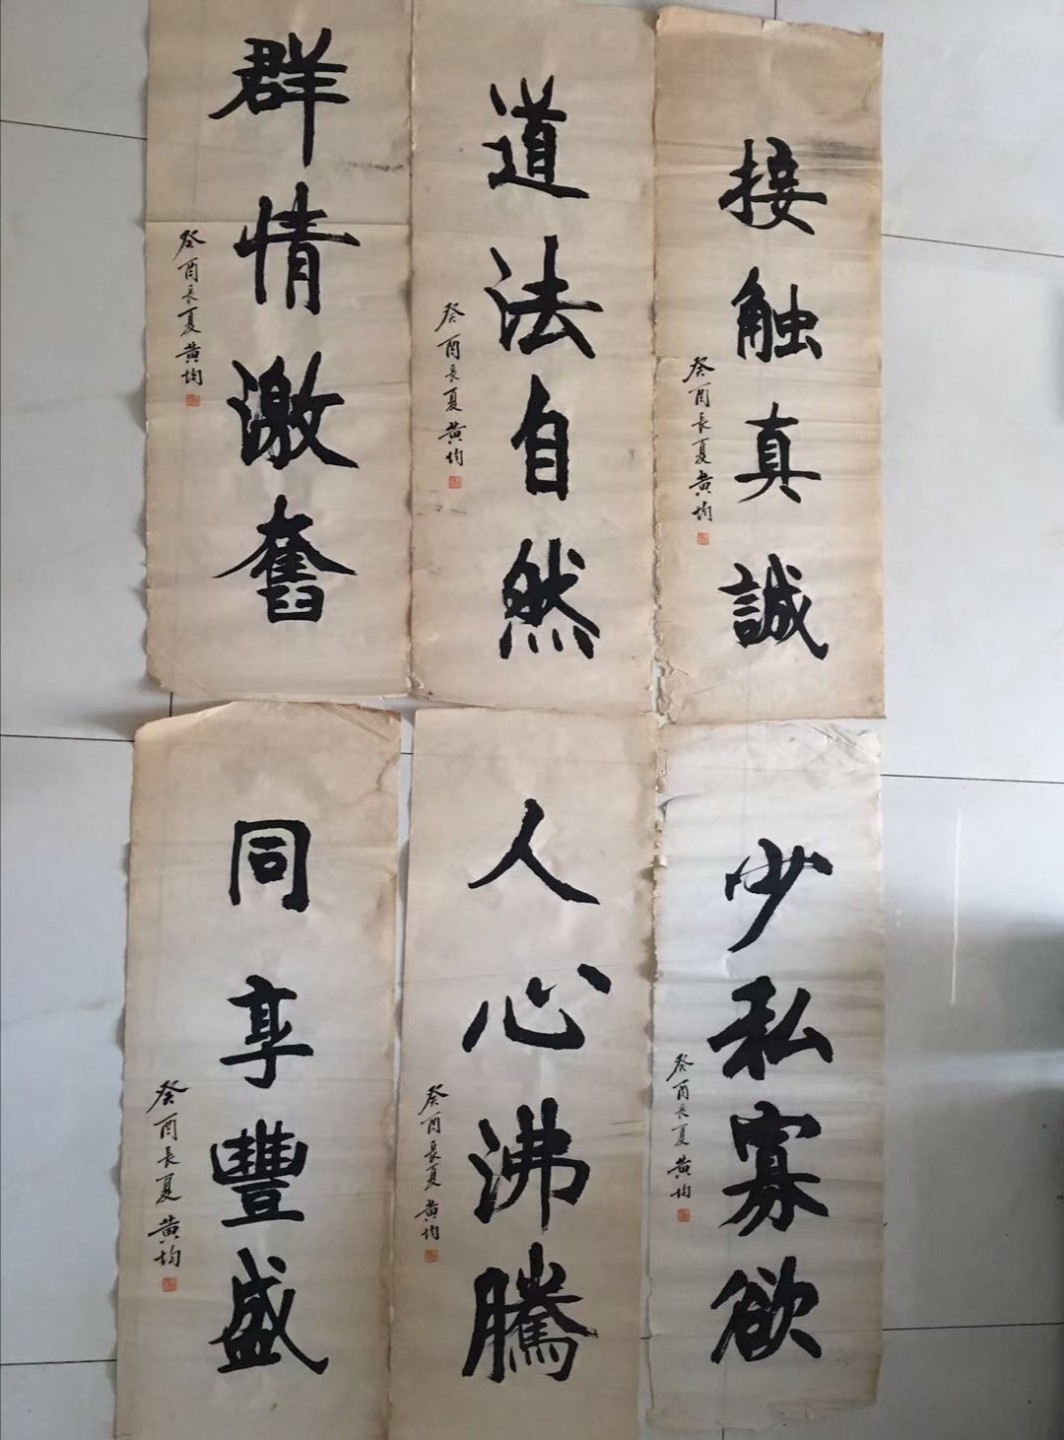 接触真誠
癸酉長夏黄均
道法自然
癸酉長夏黄均
群情激奮
癸酉長夏黄均
少私寡欲
癸酉長夏黄均
人心沸騰
癸酉長夏黄均
同享豐盛
癸酉長夏黄均